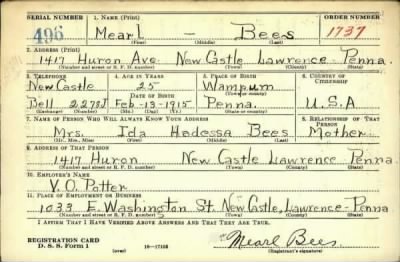 SERIAL NUMBER 1. NAME (Print) ORDER NUMBER
496 Mearl - Bees 1737
(First) (Middle) (Last)
2. ADDRESS (Print)
1417 Huron Ave New Castle Lawrence Penna.
(Number and street or R. F. D. number) (Town) (County) (State)
3. TELEPHONE 4. AGE IN YEARS 5. PLACE OF BIRTH 6. COUNTRY OF CITIZENSHIP
New Castle 25 Wampum
DATE OF BIRTH
Bell 2273J Feb-13-1915 Penna. U.S.A
(Exchange) (Number) (Mo.) (Day) (Yr.) (State or country)
7. NAME OF PERSON WHO WILL ALWAYS KNOW YOUR ADDRESS 8. RELATIONSHIP OF THAT PERSON
Mrs. Ida Hadessa Bees Mother
(Mr., Mrs., Miss) (First) (Middle) (Last)
9. ADDRESS OF THAT PERSON
1417 Huron New Castle Lawrence Penna
(Number and street or R. F. D. number) (Town) (County) (State)
10. EMPLOYER'S NAME
V.O. Potter
11. PLACE OF EMPLOYMENT OR BUSINESS
1033 E. Washington St. New Castle, Lawrence - Penna
(Number and street or R. F. D. number) (Town) (County) (State)
I AFFIRM THAT I HAVE VERIFIED ABOVE ANSWERS AND THAT THEY ARE TRUE.
REGISTRATION CARD
D. S. S. Form 1 (over) 16-17105 Mearl Bees
(Registrant's signature)